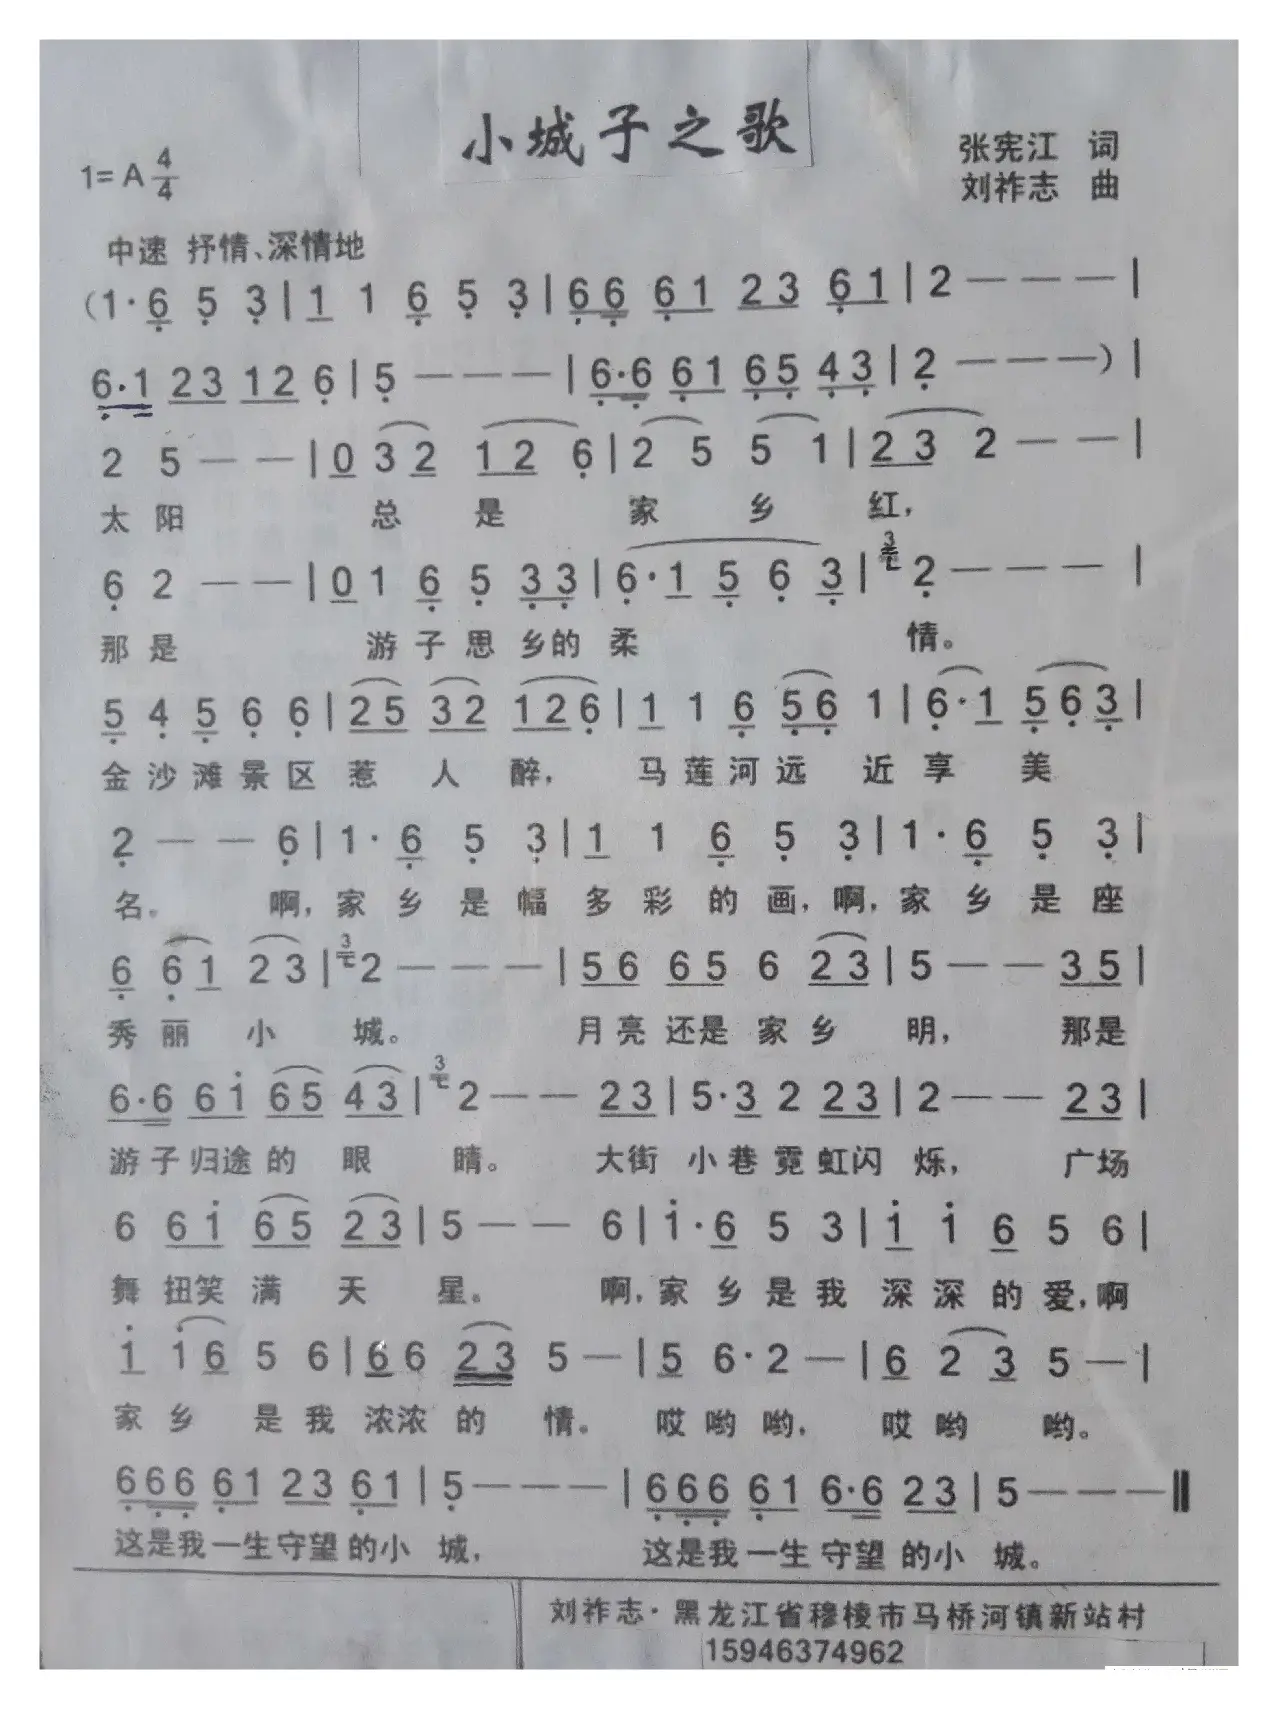 小城子之歌
1=A 4/4
张宪江 词
刘祚志 曲
中速 抒情、深情地
(1·6 5 3|1 1 6 5 3|66 61 23 61|2 — — —|
6·1 23 12 6|5 — — —|6·6 61 65 43|2 — — —)|
2 5 — —|0 3 2 12 6|2 5 5 1|23 2 — —|
太 阳 总 是 家 乡 红,
6 2 — —|0 1 6 5 33|6·1 5 6 3|3 2 — — —|
那 是 游 子 思 乡 的 柔 情。
5 4 5 6 6|25 32 126|1 1 6 56 1|6·1 563|
金 沙 滩 景 区 惹 人 醉, 马 莲 河 远 近 享 美
2 — — 6|1·6 5 3|1 1 6 5 3|1·6 5 3|
名。 啊, 家 乡 是 幅 多 彩 的 画, 啊, 家 乡 是 座
6 61 23|3 2 — — —|56 65 6 23|5 — — 35|
秀 丽 小 城。 月 亮 还 是 家 乡 明, 那 是
6·6 61 65 43|3 2 — — 23|5·3 2 23|2 — — 23|
游 子 归 途 的 眼 睛。 大 街 小 巷 霓 虹 闪 烁, 广 场
6 61 65 23|5 — — 6|1·6 5 3|1 1 6 5 6|
舞 扭 笑 满 天 星。 啊, 家 乡 是 我 深 深 的 爱, 啊
1 16 5 6|6 6 23 5 —|5 6·2 —|6 2 3 5 —|
家 乡 是 我 浓 浓 的 情。 哎 哟 哟, 哎 哟 哟。
666 61 23 61|5 — — —|666 61 6·6 23|5 — — —‖
这是我一生守望的小 城, 这是我一生守望的小 城。
刘祚志·黑龙江省穆棱市马桥河镇新站村
15946374962